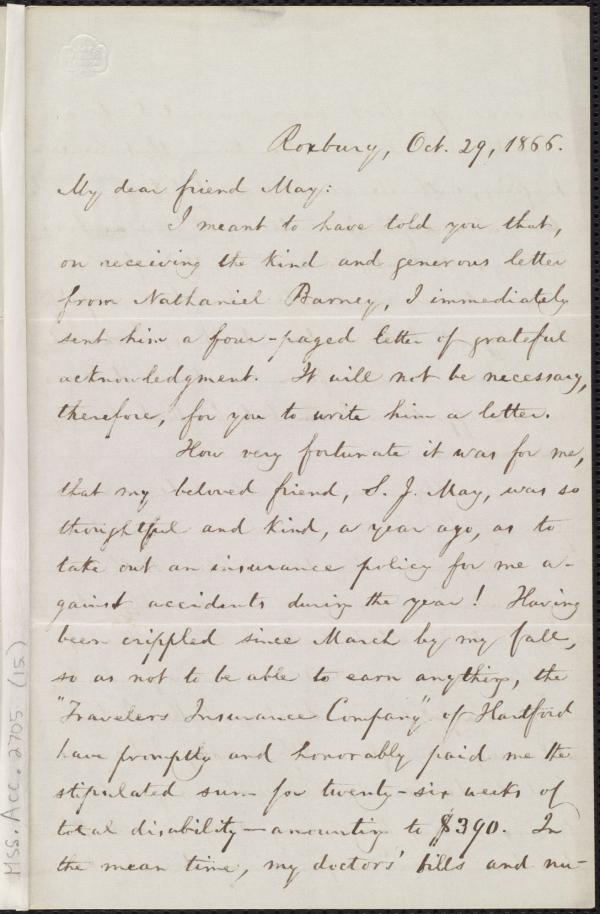 Roxbury, Oct. 29, 1866.
My dear friend May:
I meant to have told you that,
on receiving the kind and generous letter
from Nathaniel Barney, I immediately
sent him a four-paged letter of grateful
acknowledgment. It will not be necessary,
therefore, for you to write him a letter.
How very fortunate it was for me,
that my beloved friend, S. J. May, was so
thoughtful and kind, a year ago, as to
take out an insurance policy for me a-
gainst accidents during the year! Having
been crippled since March by my fall,
so as not to be able to earn anything, the
"Travelers Insurance Company" of Hartford
have promptly and honorably paid me the
stipulated sum for twenty-six weeks of
total disability—amounting to $390. In
the mean time, my doctors' bills and nu-
MSS. Acc. 2705 (15)